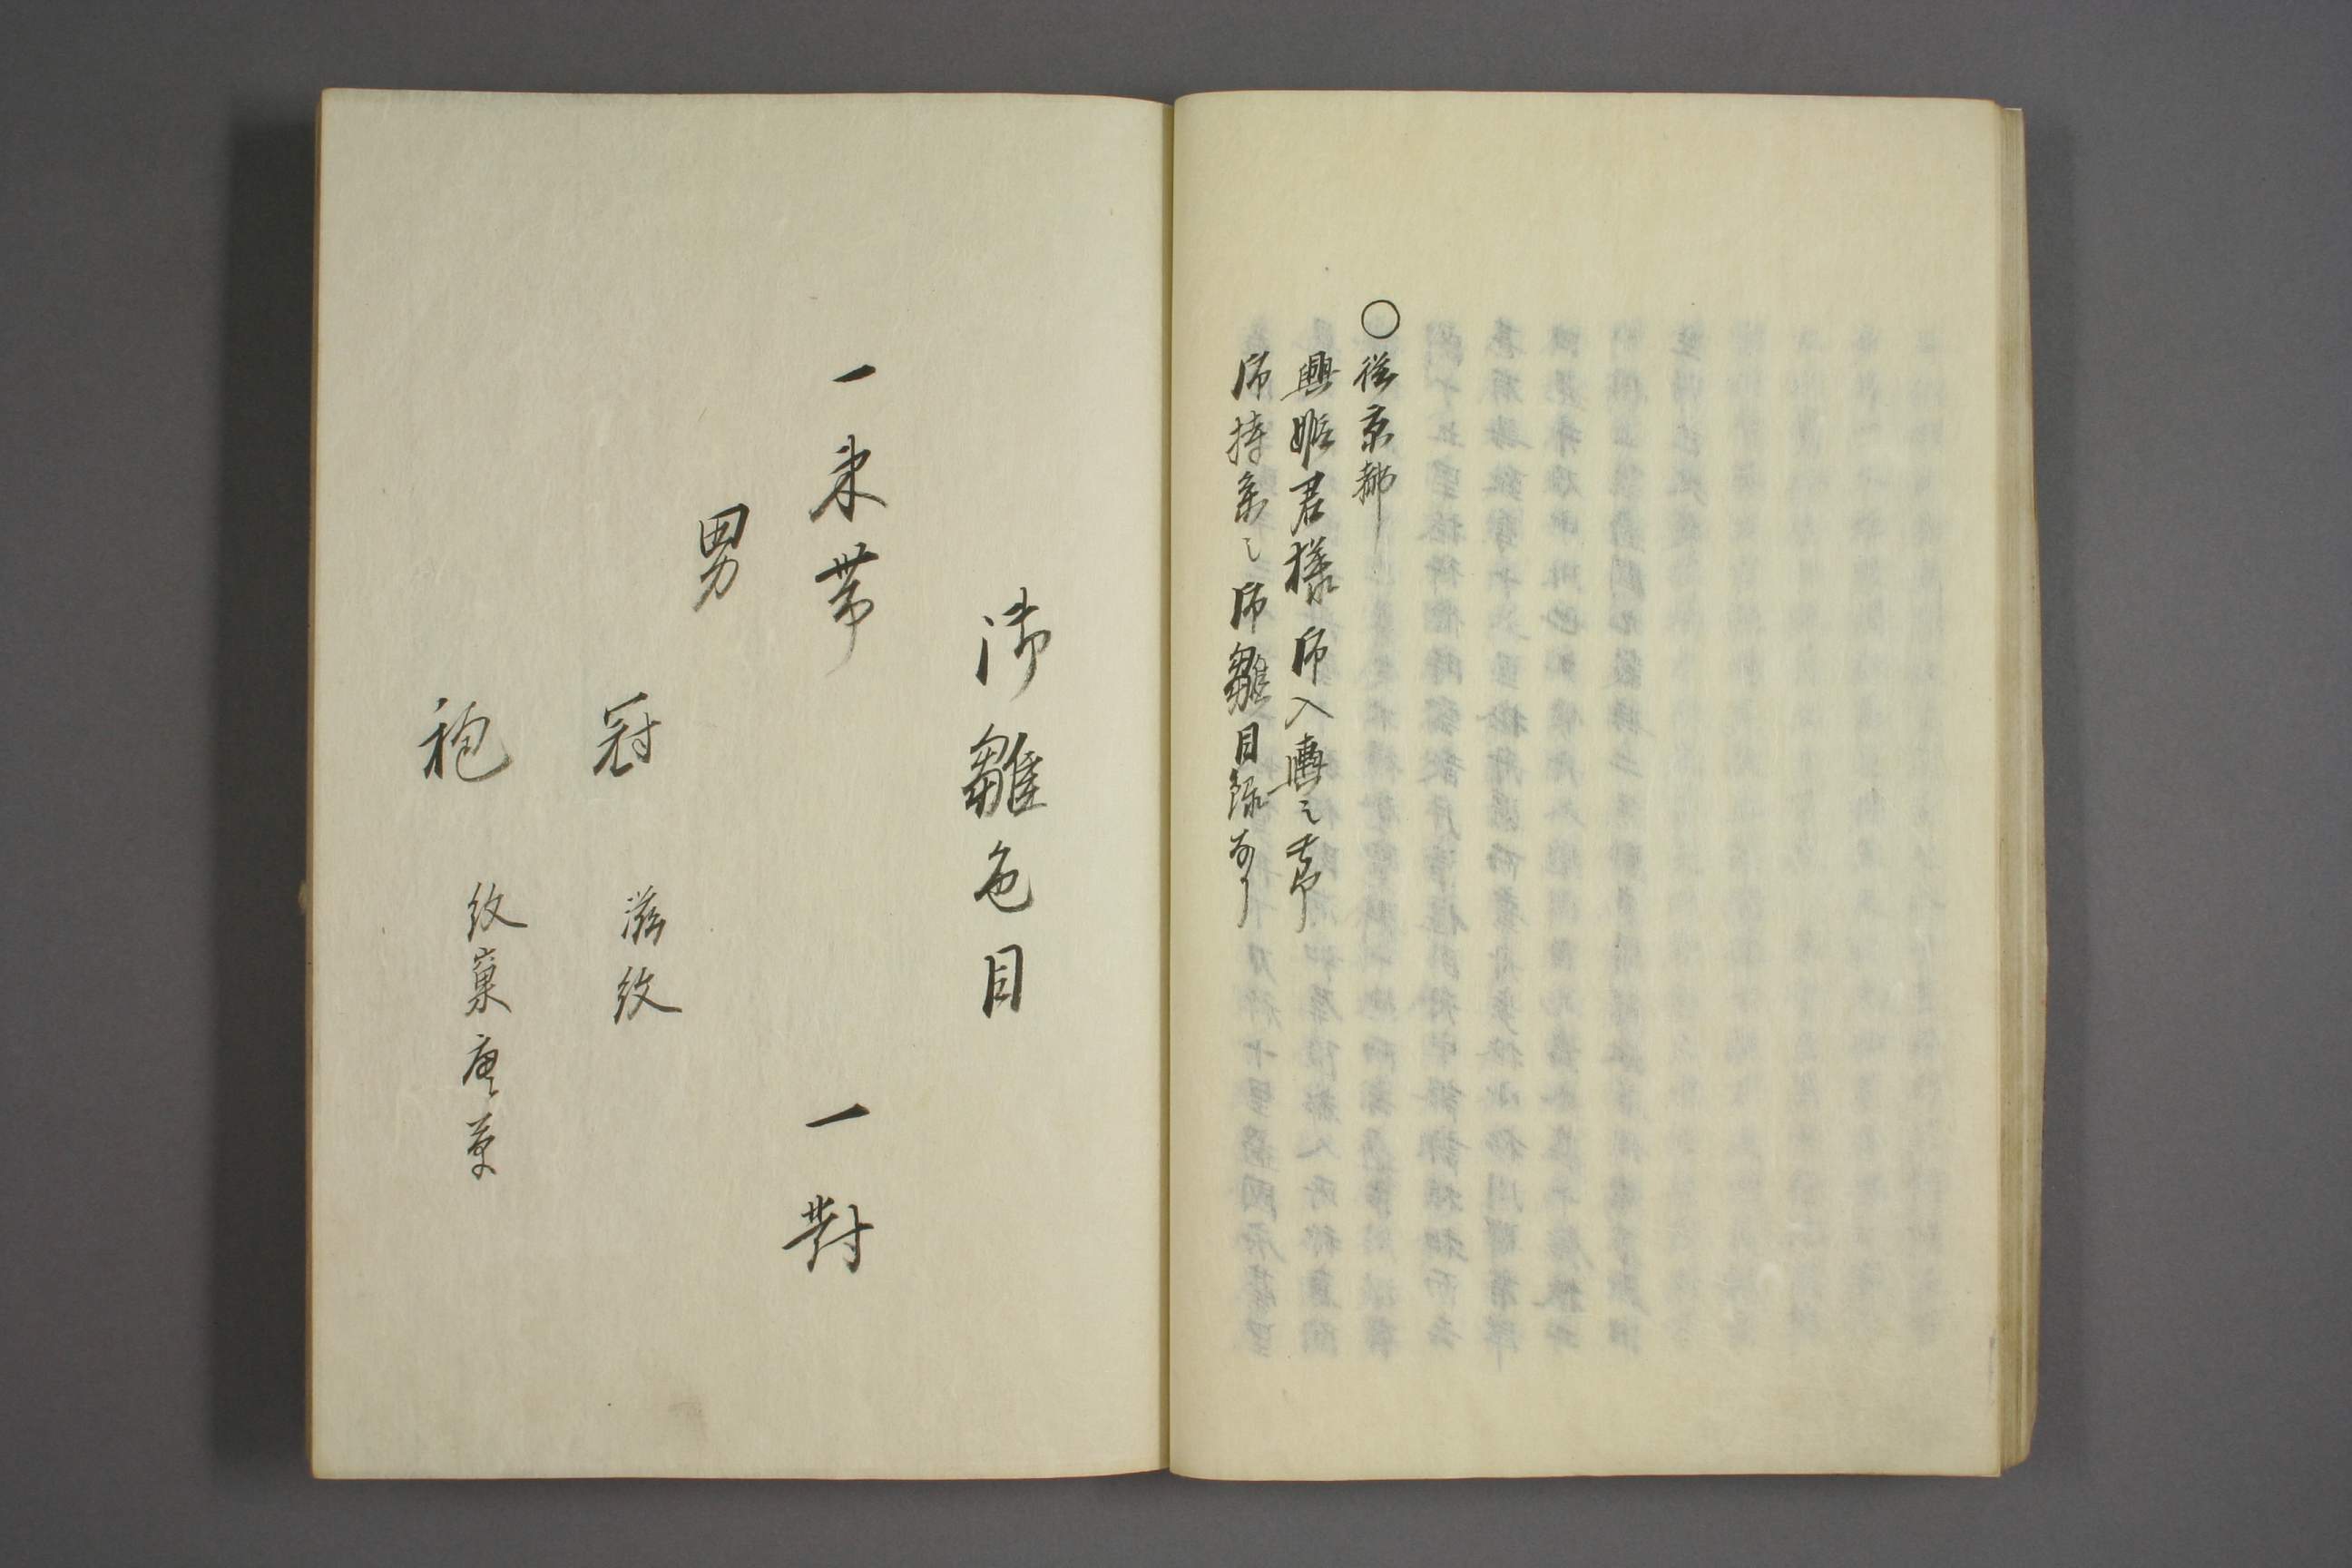 ○従京都
興姫君様御入輿之節
御持参之御雛目録
御雛色目
一束帯　一對
男
冠　滋紋
袍　紋窠唐草